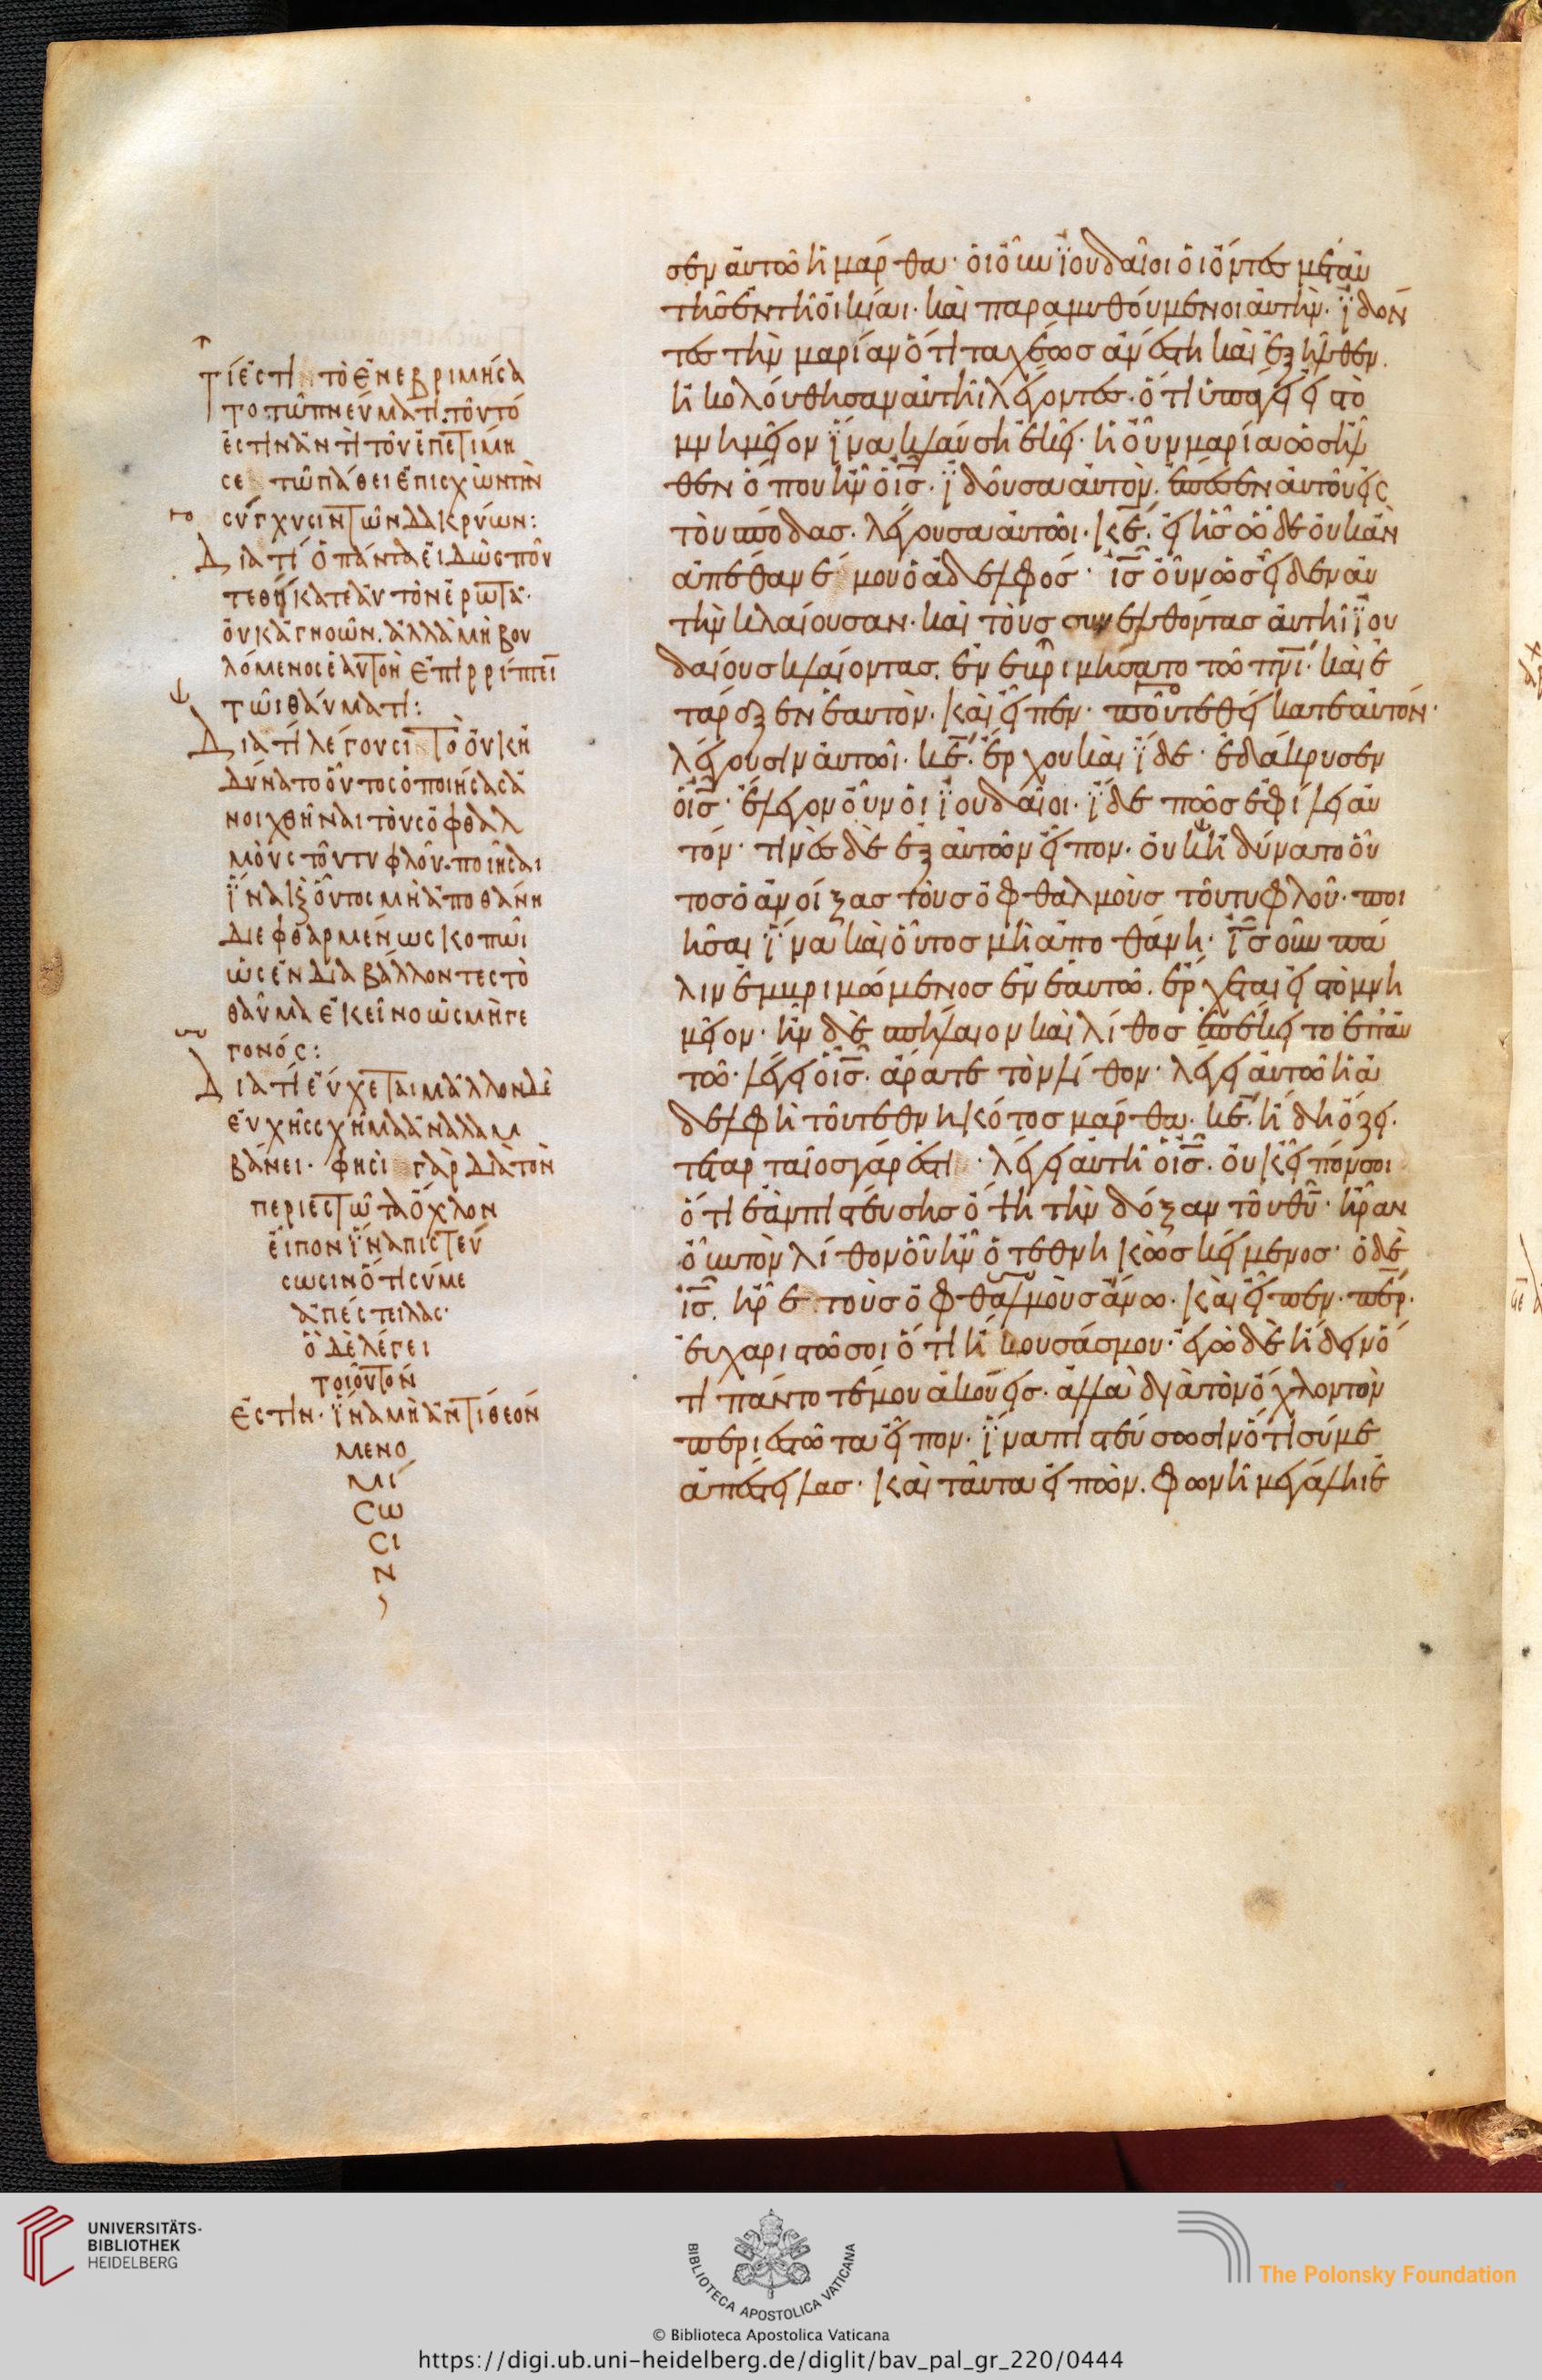 Τί ἐστι τὸ ἐνεβριμήσα
το τῶ πνεύματι· τοῦτό
ἐστιν ἀντὶ τοῦ ἐπετίμη
σε τῶ πάθει ἐπισχὼν τὴν
σύγχυσιν τῶν δακρύων:
Διατί ὁ πάντα εἰδὼς ποῦ
τεθήκατε αὐτὸν ἐρωτᾶ·
οὐκ ἀγνοῶν. ἀλλὰ μὴ βου
λόμενος ἑαυτὸν ἐπιρρίπτειν
τῶι θαύματι:
Διατί λέγουσι τὸ οὐκ ἠ
δύνατο οὗτος ὁ ποιήσας ἀ
νοιχθῆναι τοὺς ὀφθαλ
μοὺς τοῦ τυφλοῦ· ποιῆσαι
ἵνα καὶ οὗτος μὴ ἀποθάνη
διεφθαρμένως κοπῶι
ὡς ἐνδιαβάλλοντες τὸ
θαῦμα ἐκεῖνο ὡς μὴ γε
γονός:
Διατί εὔχεται μᾶλλον δὲ
εὐχῆς σχῆμα ἀναλαμ
βάνει· φησὶ γὰρ διὰ τὸν
περιεστῶτα ὄχλον
εἶπον ἵνα πιστεύ
σωσιν ὅτι σύ με
ἀπέστειλας·
ὃ δὲ λέγει
τοιοῦτον
ἐστιν· ἵνα μὴ ἀντίθεόν
με νο
μί
σω
σι
ν
σεν αὐτῶ ἡ μάρθα· οἱ οὖν ἰουδαῖοι οἱ ὄντες μετ αὐ
τῆς ἐν τῆ οἰκίαι· καὶ παραμυθούμενοι αὐτὴν· ἰδόν
τες τὴν μαρίαν ὅτι ταχέως ἀνέστη καὶ ἐξῆλθεν.
ἠκολούθησαν αὐτῆ λέγοντες· ὅτι ὑπάγει εἰς τὸ
μνημεῖον ἵνα κλαύση ἐκεῖ· ἡ οὖν μαρία ὡς ἦλ
θεν ὅπου ἦν ὁ ἰς· ἰδοῦσα αὐτὸν. ἔπεσεν αὐτοῦ εἰς
τοὺς πόδας· λέγουσα αὐτῶι· κε. εἰ ἦς ὧδε οὐκ ἂν
ἀπέθανέ μου ὁ ἀδελφός· ἰς οὖν ὡς εἶδεν αὐ
τὴν κλαίουσαν· καὶ τοὺς συνελθόντας αὐτῆ ἰου
δαίους κλαίοντας. ἐνεβριμήσατο τῶ πνι· καὶ ἐ
τάραξεν ἑαυτὸν· καὶ εἶπεν· ποῦ τεθείκατε αὐτόν·
λέγουσιν αὐτῶι· κε. ἔρχου καὶ ἴδε· ἐδάκρυσεν
ὁ ἰς· ἔλεγον οὖν οἱ ἰουδαῖοι· ἴδε πῶς ἐφίλει αὐ
τόν· τινὲς δὲ ἐξ αὐτῶν εἶπον· οὐκ ἠδύνατο οὗ
τος ὁ ἀνοίξας τοὺς ὀφθαλμοὺς τοῦ τυφλοῦ· ποι
ῆσαι ἵνα καὶ οὗτος μὴ ἀποθάνη· ἰς οὖν πά
λιν ἐμβριμώμενος ἐν ἑαυτῶ. ἔρχεται εἰς τὸ μνη
μεῖον· ἦν δὲ σπήλαιον καὶ λίθος ἐπέκειτο ἐπ αὐ
τῶ· λέγει ὁ ἰς. ἄρατε τὸν λίθον· λέγει αὐτῶ ἡ ἀ
δελφὴ τοῦ τεθνηκότος μάρθα· κε. ἤδη ὄζει.
τεταρταῖος γάρ ἐστι· λέγει αὐτῆ ὁ ἰς. οὐκ εἶπόν σοι
ὅτι ἐὰν πιστεύσης ὄψη τὴν δόξαν τοῦ θυ· ἦραν
οὖν τὸν λίθον οὗ ἦν ὁ τεθνηκὼς κείμενος· ὁ δὲ
ἰς. ἦρε τοὺς ὀφθαλμοὺς ἄνω· καὶ εἶπεν· περ.
εὐχαριστῶ σοι ὅτι ἤκουσάς μου· ἐγὼ δὲ ἤδειν ὅ
τι πάντοτέ μου ἀκούεις· ἀλλὰ διὰ τὸν ὄχλον τὸν
περιεστῶτα εἶπον· ἵνα πιστεύσωσιν ὅτι σύ με
ἀπέστειλας· καὶ ταῦτα εἰπὼν. φωνῆ μεγάλη ἐ
UNIVERSITÄTS-
BIBLIOTHEK
HEIDELBERG
BIBLIOTECA APOSTOLICA VATICANA
The Polonsky Foundation
© Biblioteca Apostolica Vaticana
https://digi.ub.uni-heidelberg.de/diglit/bav_pal_gr_220/0444